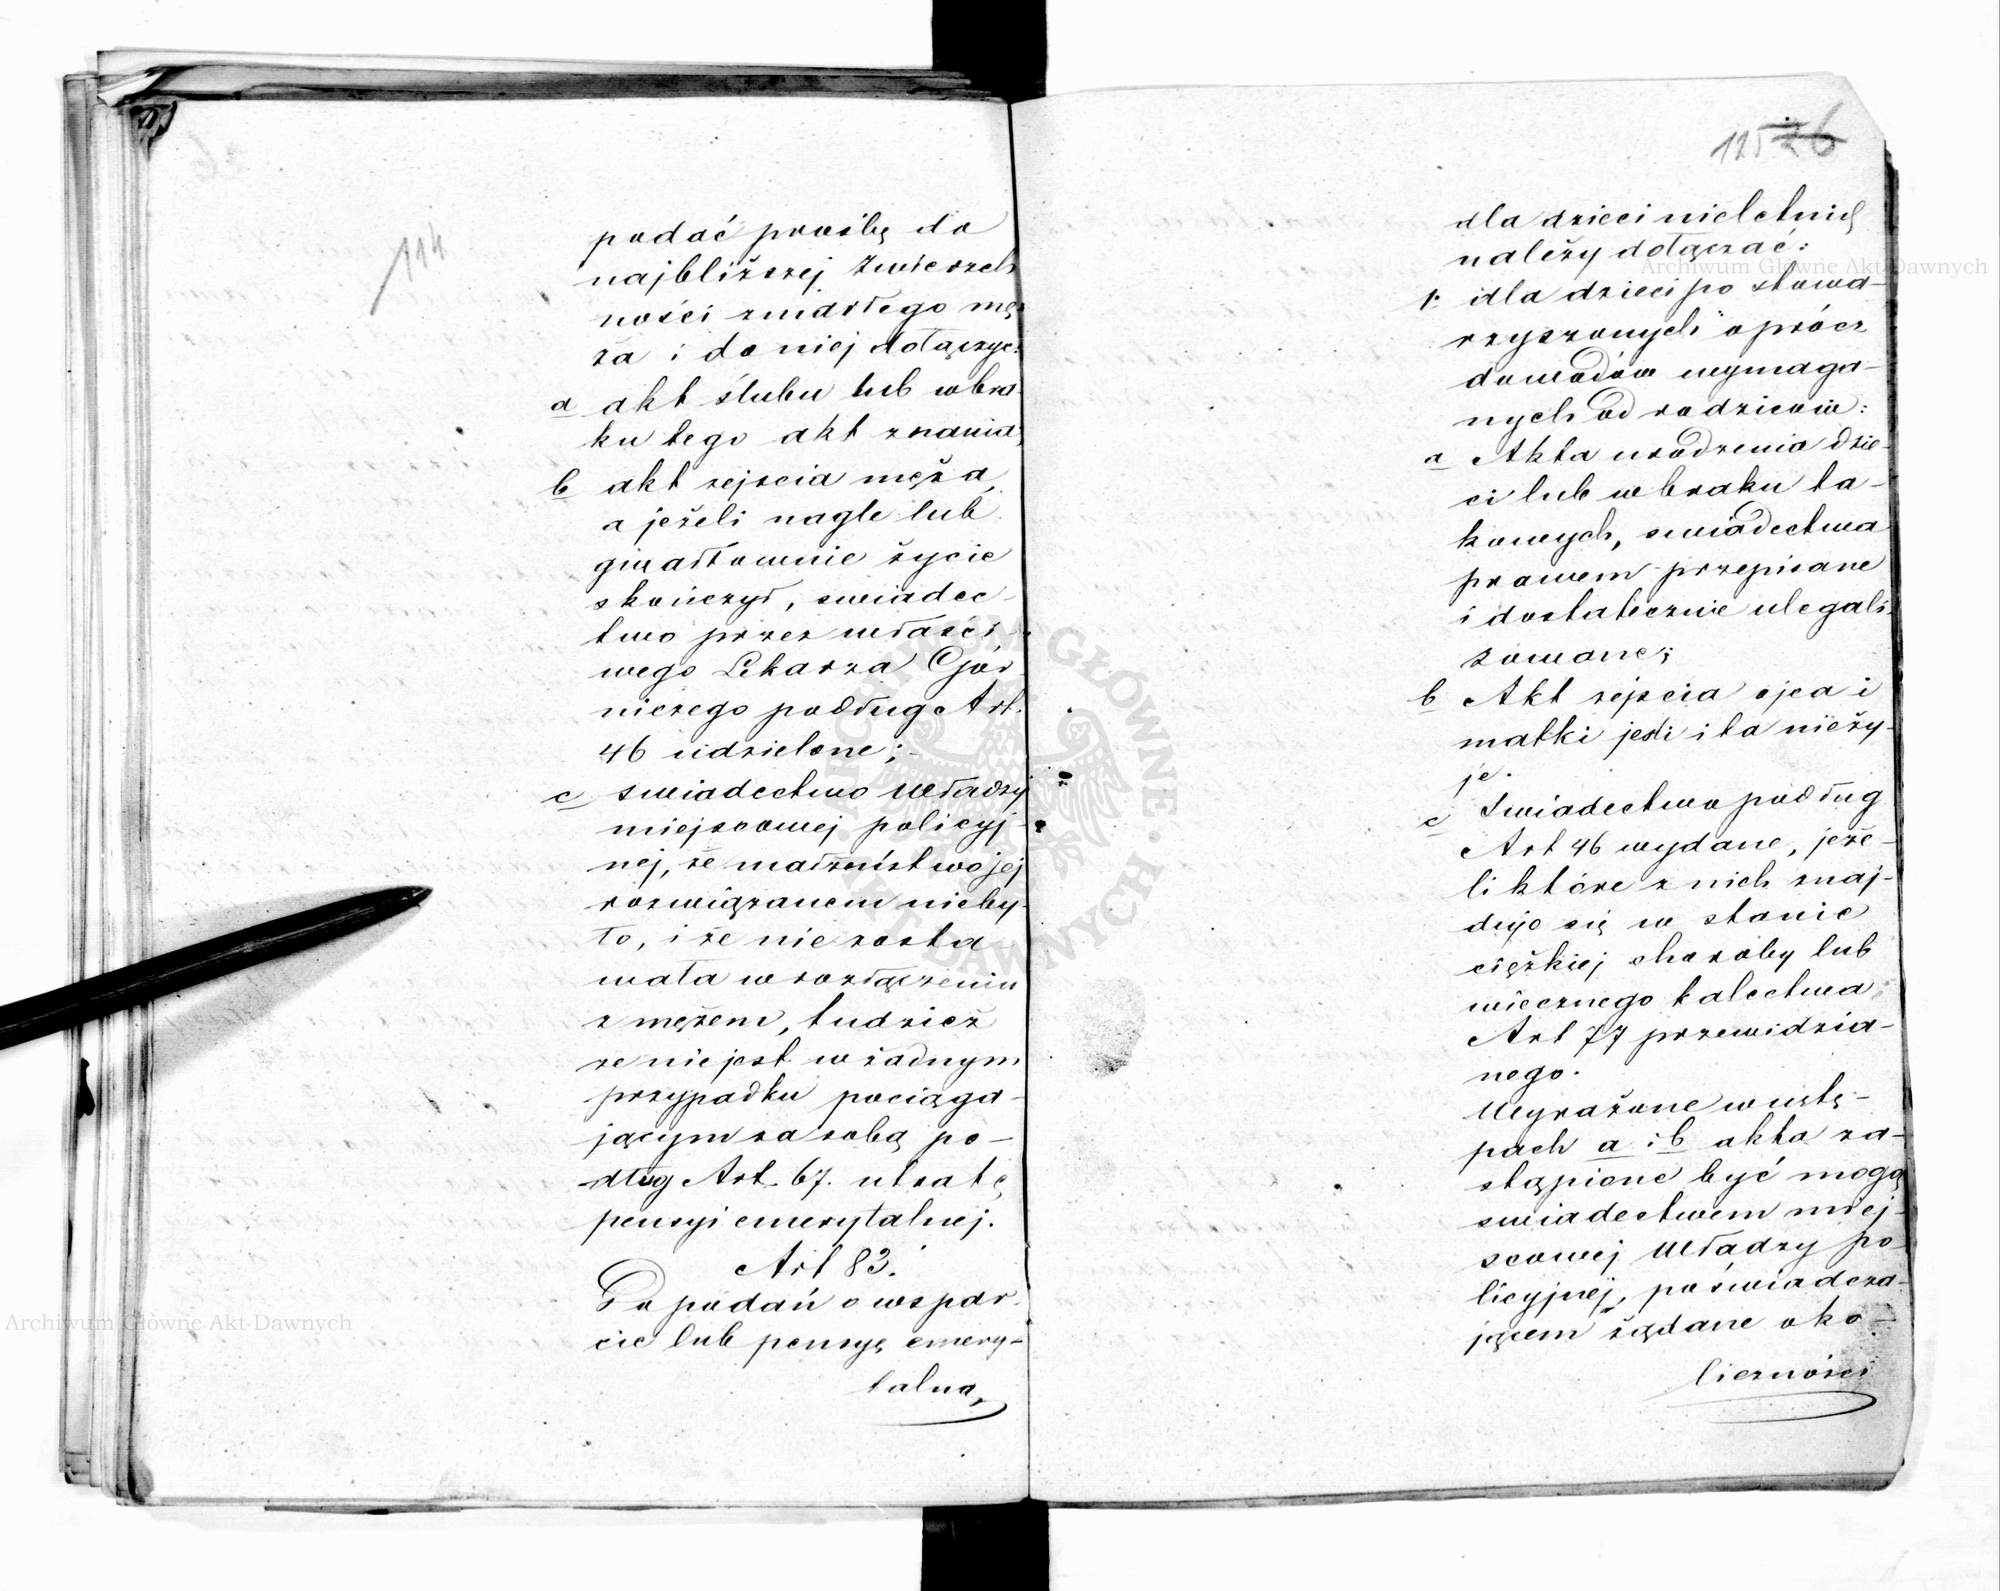 114
podać prośbę do
najbliższej Zwierzch
ności zmarłego mę
ża i do niej dołączyć:
a akt ślubu lub w bra
ku tego akt znania;
b akt zejscia męża,
a jeżeli nagle lub
gwałtownie życie
skończył, swiadec-
two przez właści-
wego Lekarza Gór
niczego podług Art.
46 udzielone;
c swiadectwo Władzy
miejscowej policyj-
nej, że małżeństwo jej
rozwiązanem nieby-
ło, i że nie zosta-
wała w rozłączeniu
z mężem, tudzież
że nie jest w żadnym
przypadku pociąga-
jącym za sobą po-
dług Art. 67. utratę
pensyi emerytalnej.
Art 83.
Do podań o wspar-
cie lub pensyę emery-
talną
125 76
dla dzieci nieletnich
należy dołączać:
1. dla dzieci po stowa-
rzyszonych oprócz
dowodów wymaga-
nych od rodziców:
a Akta urodzenia dzie-
ci lub w braku ta-
kowych, swiadectwa
prawem przepisane
i dostatecznie ulegali
zowane;
b Akt zejscia ojca i
matki jeśli i ta nieży-
je.
c Swiadectwo podług
Art 46 wydane, jeże-
li które z nich znaj-
duje się w stanie
ciężkiej choroby lub
wiecznego kalectwa
Art 77 przewidzia-
nego.
Wyrażone w ustę-
pach a i b akta za-
stąpione być mogą
swiadectwem miej-
scowej Władzy po-
licyjnej, poświadcza-
jącem żądane oko-
liczności
Archiwum Główne Akt Dawnych
Archiwum Główne Akt Dawnych
ARCHIWUM GŁÓWNE AKT DAWNYCH